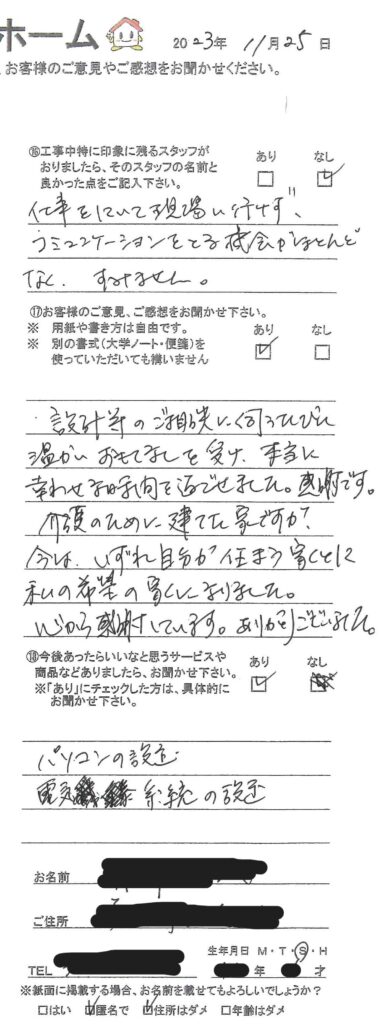 ホーム
2023年 11月25日
お客様のご意見やご感想をお聞かせください。
⑯工事中特に印象に残るスタッフが
おりましたら、そのスタッフの名前と
良かった点をご記入下さい。
あり なし
□ ☑
仕事をしていて現場に行けず、
コミュニケーションをとる機会がほとんど
なく、すみません。
⑰お客様のご意見、ご感想をお聞かせ下さい。
※ 用紙や書き方は自由です。
※ 別の書式(大学ノート・便箋)を
使っていただいても構いません
あり なし
☑ □
設計等のご相談に伺うたびに
温かいおもてなしを受け、本当に
幸わせな時間を過ごせました。感謝です。
介護のために建てた家ですが、
今は、いずれ自分が住まう家として
私の希望の家になりました。
心から感謝しています。ありがとうございました。
⑱今後あったらいいなと思うサービスや
商品などありましたら、お聞かせ下さい。
※「あり」にチェックした方は、具体的に
お聞かせ下さい。
あり なし
☑
パソコンの設定
電気 系統の設定
お名前
ご住所
TEL
生年月日 M・T・S・H
年 才
※紙面に掲載する場合、お名前を載せてもよろしいでしょうか?
□はい ☑匿名で ☑住所はダメ □年齢はダメ